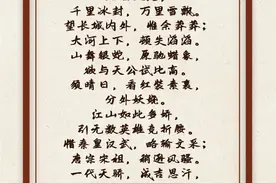 千里冰封，万里雪飘。
望长城内外，惟余莽莽；
大河上下，顿失滔滔。
山舞银蛇，原驰蜡象，
欲与天公试比高。
须晴日，看红装素裹，
分外妖娆。
江山如此多娇，
引无数英雄竞折腰。
惜秦皇汉武，略输文采；
唐宗宋祖，稍逊风骚。
一代天骄，成吉思汗，